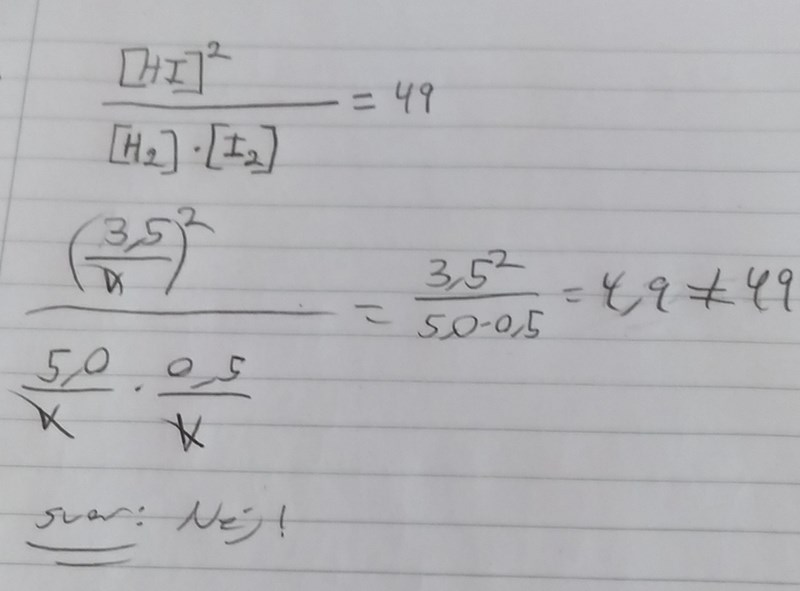 [HI]² / [H₂]·[I₂] = 49
(3,5/V)² / (5,0/V · 0,5/V) = 3,5² / 5,0·0,5 = 4,9 ≠ 49
svar: Nej!